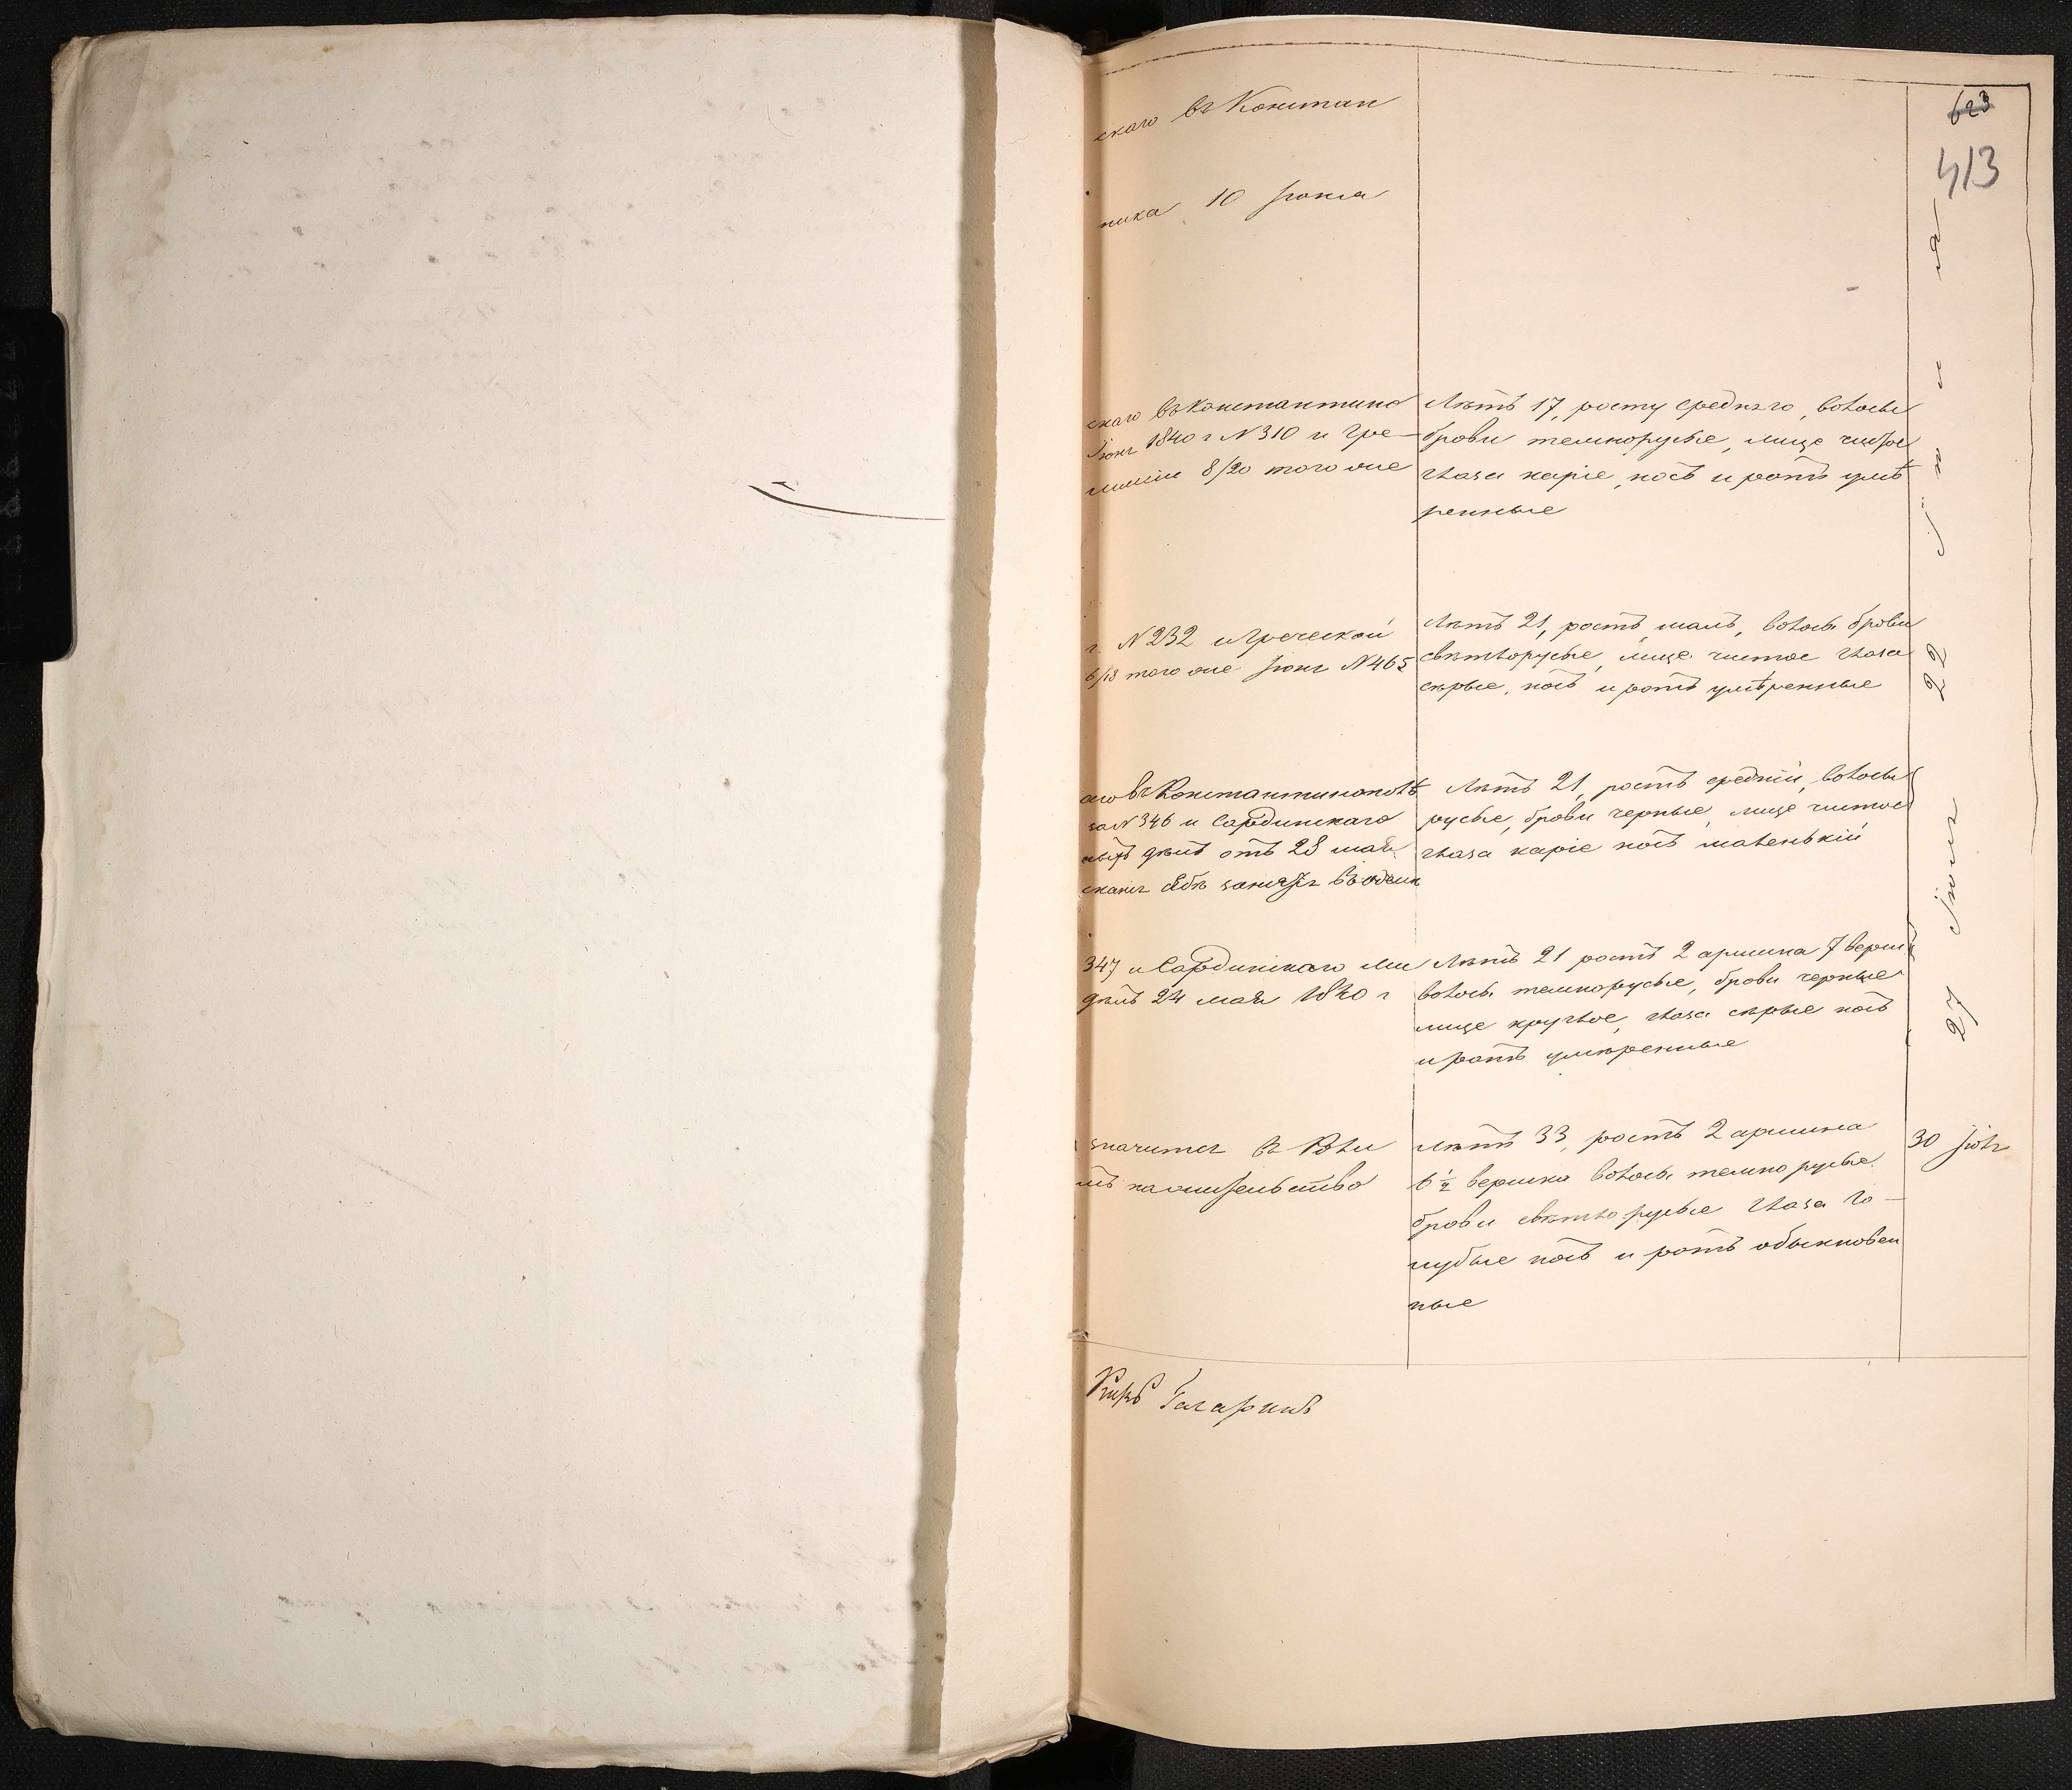 623
413
скаго въ Констан
ника 10 Іюня
скаго въ Константино
Іюня 1840 г N 310 и Гре-
миссіи 8/20 того же
Лѣтъ 17, росту средняго, волосы
брови темнорусые, лице чистое
глаза каріе, носъ и ротъ умѣ
ренные
г. N 232 и Греческой
6/18 того же Іюня N 465
Лѣтъ 21, ростъ малъ, волосы брови
свѣтлорусые, лице чистое глаза
сѣрые, носъ и ротъ умѣренные
22 Іюня
аго въ Константинополѣ
за N 346 и Сардинскаго
ныхъ дѣлъ отъ 23 мая
въ
Лѣтъ 21, ростъ средній, волосы
русые, брови черные, лице чистое
глаза каріе носъ маленькій
347 и Сардинскаго Ми
дѣлъ 24 мая 1840 г
Лѣтъ 21 ростъ 2 аршина 7 верш
волосы темнорусые, брови черные
лице круглое, глаза сѣрые носъ
и ротъ умѣренные
27 Іюня
значится въ
на жительство
Лѣтъ 33, ростъ 2 аршина
6 1/2 вершка волосы темно русые
брови свѣтло русые глаза го-
лубые носъ и ротъ обыкновен
ные
30 Іюня
Гагаринъ